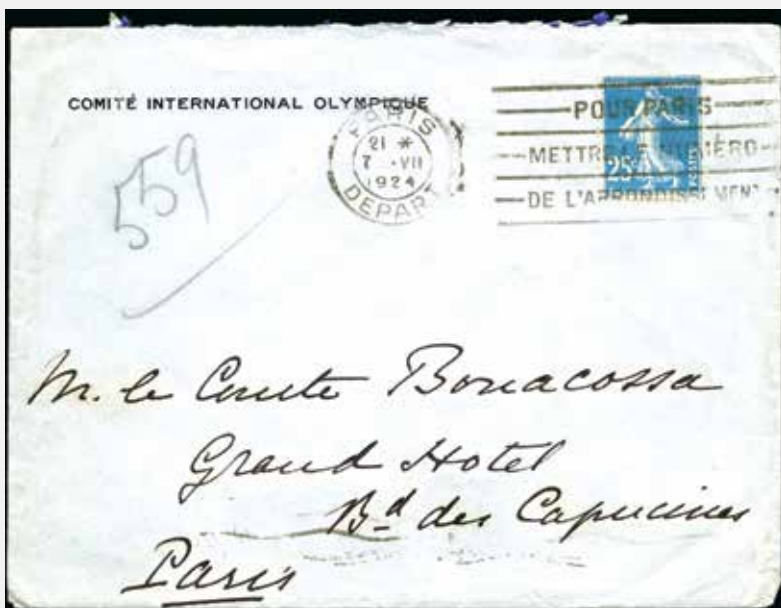 COMITÉ INTERNATIONAL OLYMPIQUE
PARIS
21 *
7 • VII
1924
DEPART
POUR PARIS
METTRE LE NUMÉRO
DE L'ARRONDISSEMENT
25c
POSTES
559
M. le Comte Bonacossa
Grand Hotel
Bd des Capucines
Paris